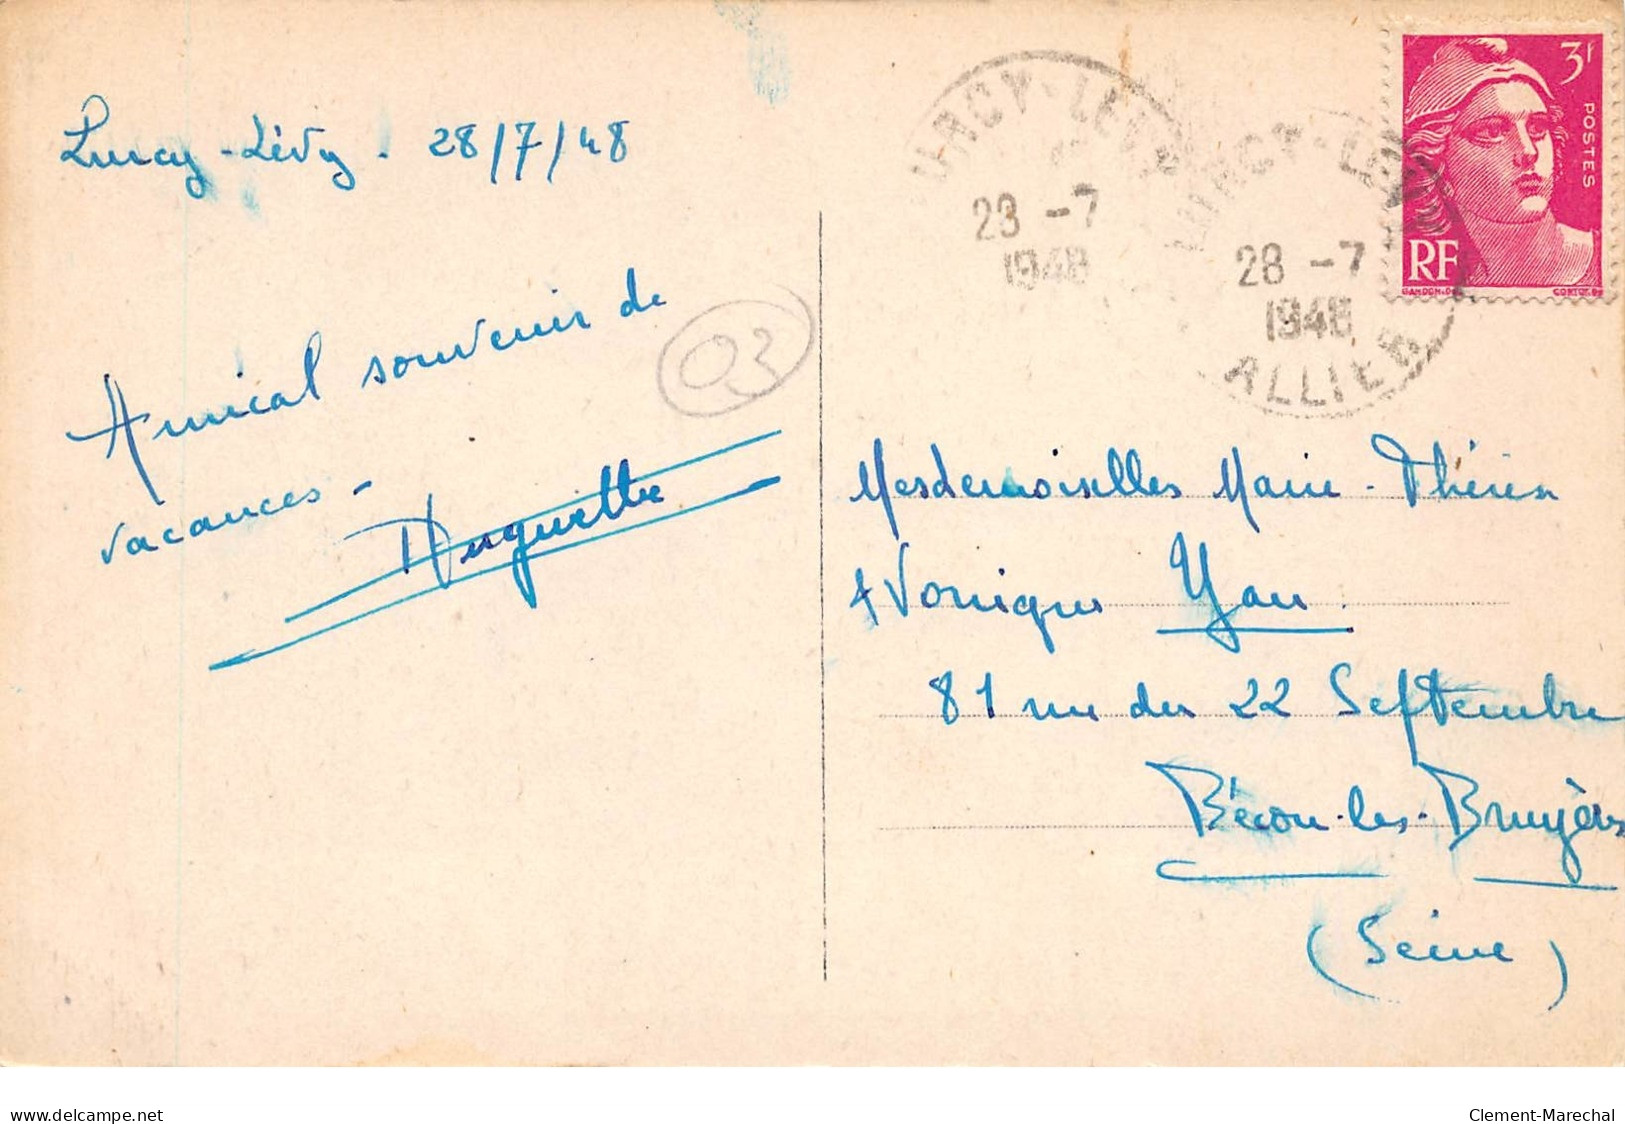 Lurcy-Lévy. 28/7/48
Amical souvenir de
vacances -
Huguette
03
LURCY-LEVY
28 -7
1948
LURCY-LEVY
28 -7
1948
ALLIER
3f
POSTES
RF
GANDON
CORTOT
Mesdemoiselles Marie-Thérèse
+ Vonique Yau
81 rue du 22 Septembre
Bécon-les-Bruyères
(Seine)
delcampe.net
Clement-Marechal